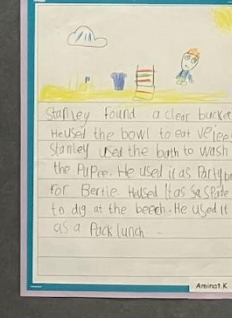 Stanley found a clear bucke
He used the bowl to eat
Stanley used the bath to wash
the PuPee. He used it as Party
for Bertie. He used It as
to dig at the beech. He used it
as a Pack lunch
Aminat.K